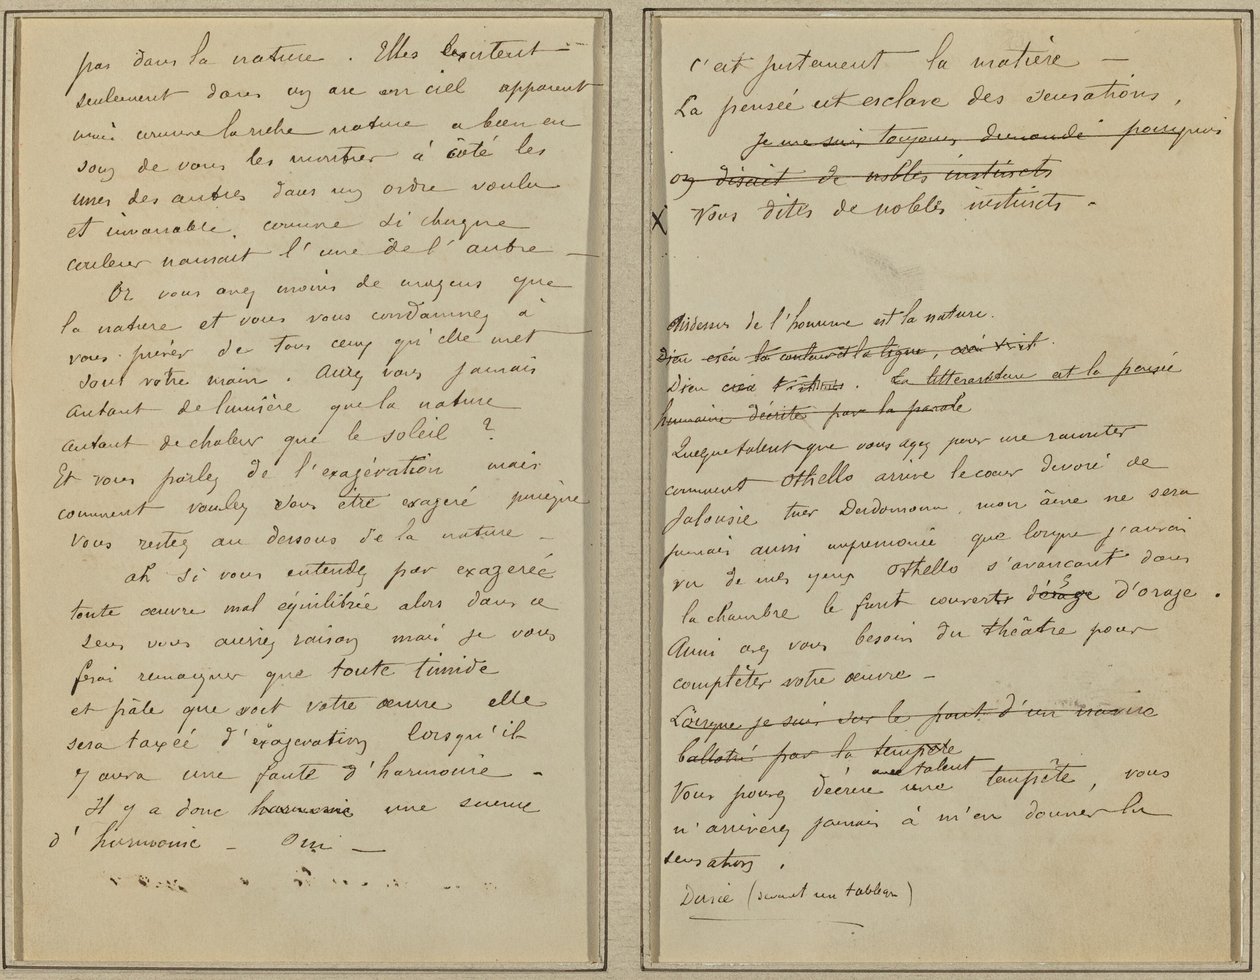 pas dans la nature. Elles existent —
seulement dans un arc en ciel apparent
mais comme la riche nature a bien en
soin de vous les montrer à côté les
unes des autres dans un ordre voulu
et invariable, comme si chaque
couleur naissait l'une de l'autre —
Or vous avez moins de moyens que
la nature et vous vous condamnez à
vous priver de tous ceux qu'elle met
sous votre main. Aurez vous jamais
autant de lumière que la nature
autant de chaleur que le soleil ?
Et vous parlez de l'exagération mais
comment voulez vous être exageré puisque
vous restez au dessous de la nature —
ah si vous entendez par exageréé
toute œuvre mal équilibrée alors dans ce
sens vous auriez raison mais je vous
ferai remarquer que toute timide
et pâle que soit votre œuvre elle
sera taxéé d'éxageration lorsqu'il
y aura une faute d'harmonie —
Il y a donc harmonie une science
d'harmonie — Oui —
c'est justement la matière —
La pensée est esclave des sensations,
Je me suis toujours demandé pourquoi
on disait de nobles instincts
X Vous dites de nobles instincts —
Audessus de l'homme est la nature.
Dieu créa la couleur et la ligne,
Dieu créa. La litterarature est la pensée
humaine décrite par la parole
Quelque talent que vous ayez pour me raconter
comment Othello arrive le cœur devoré de
Jalousie tuer Desdemona, mon âme ne sera
jamais aussi impressioné que lorsque j'aurai
vu de mes yeux Othello s'avancant dans
la chambre le front couvert d'orage d'orage.
Aussi avez vous besoin du théâtre pour
complêter votre œuvre —
Lorsque je suis sur le pont d'un navire
ballotté par la tempête
avec talent
Vous pouvez décrire une tempête, vous
n'arriverez jamais à m'en donner la
sensation.
(devant un tableau)